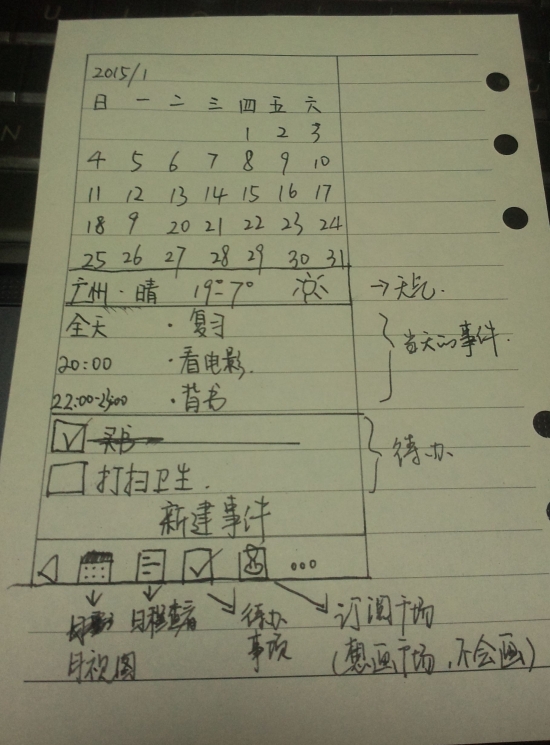 2015/1
日 一 二 三 四 五 六
1 2 3
4 5 6 7 8 9 10
11 12 13 14 15 16 17
18 9 20 21 22 23 24
25 26 27 28 29 30 31
广州·晴 19°-7° →天气.
全天 ·复习
20:00 ·看电影. 当天的事件.
22:00-23:00 ·背书
买书
打扫卫生. 待办
新建事件
...
日程查看 待办 订阅广场
月视图 事项 (想画广场,不会画)